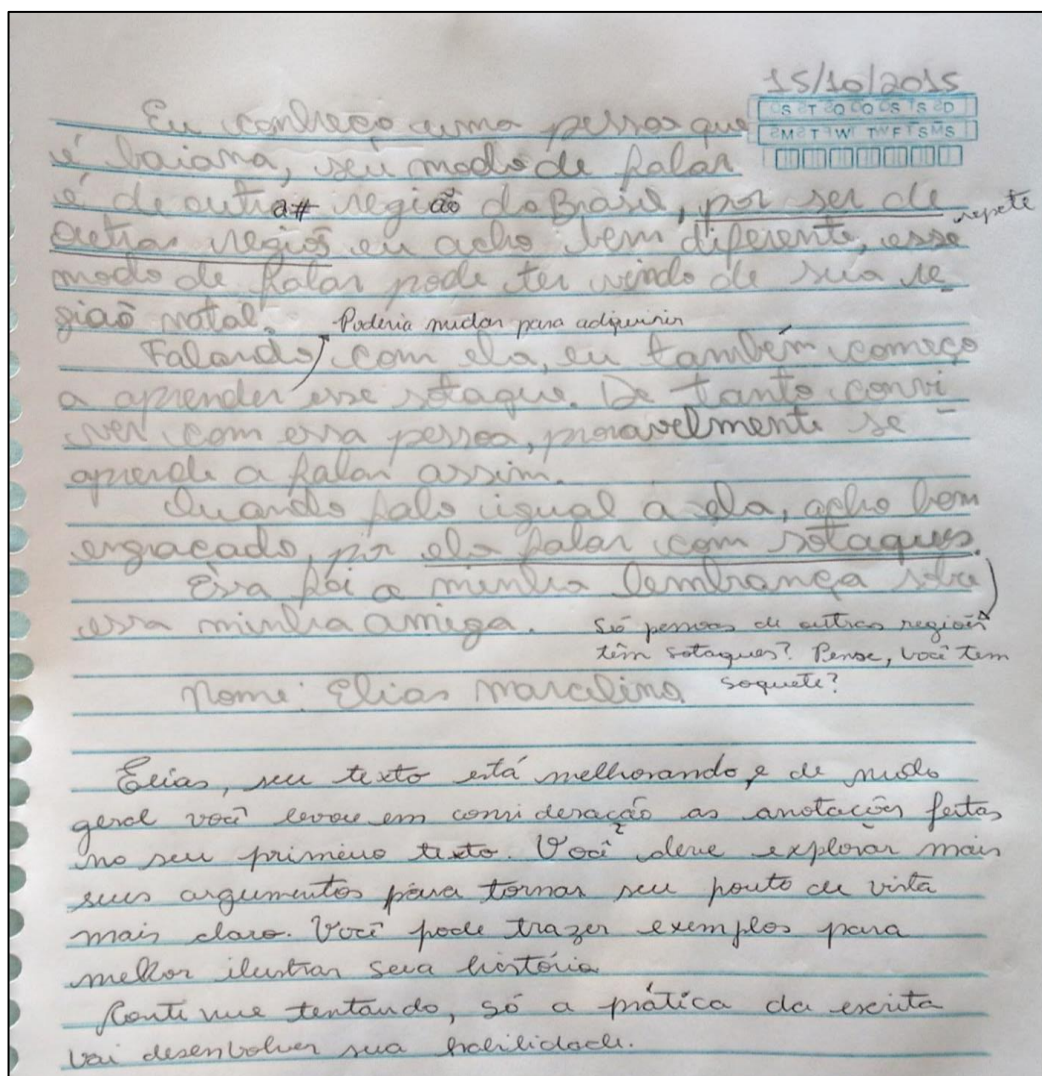 15/10/2015
S T Q Q S S D
M T W T F S S
Eu conheço uma pessoa que
é baiana, seu modo de falar
é de outra região do Brasil, por ser de
repete
outras regiõs eu acho bem diferente, esse
modo de falar pode ter vindo de sua re
gião natal.
Poderia mudar para adiquirir
Falando com ela, eu também começo
a aprender esse sotaque. De tanto convi
ver com essa pessoa, provavelmente se
aprende a falar assim.
Quando falo igual a ela, acho bem
engraçado, por ela falar com sotaques.
Essa foi a minha lembrança sobre
essa minha amiga.
só pessoas de outras regiões
têm sotaques? Pense, você tem
soquete?
Nome: Elias Marcelino
Elias, seu texto está melhorando, e de modo
geral você levou em consideração as anotações feitas
no seu primeiro texto. Você deve explorar mais
seus argumentos para tornar seu ponto de vista
mais claro. Você pode trazer exemplos para
melhor ilustrar sua história
Continue tentando, só a prática da escrita
vai desenvolver sua habilidade.